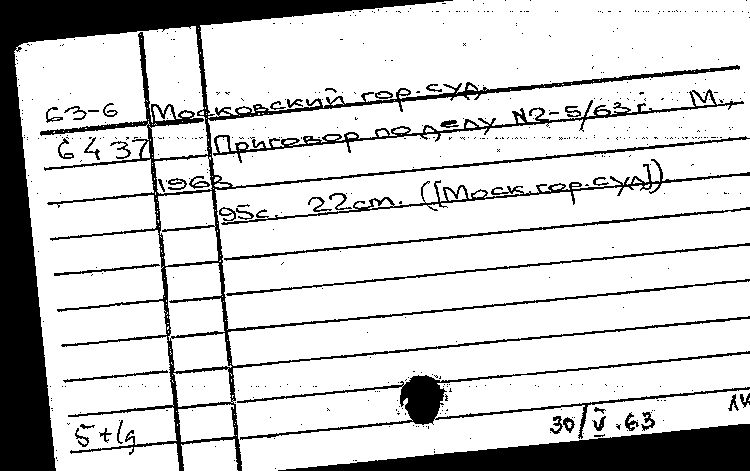 63-6 Московский гор. суд.
6437 Приговор по делу N2-5/63г. М.,
1963
95с. 22см. ([Моск. гор. суд])
30/V.63